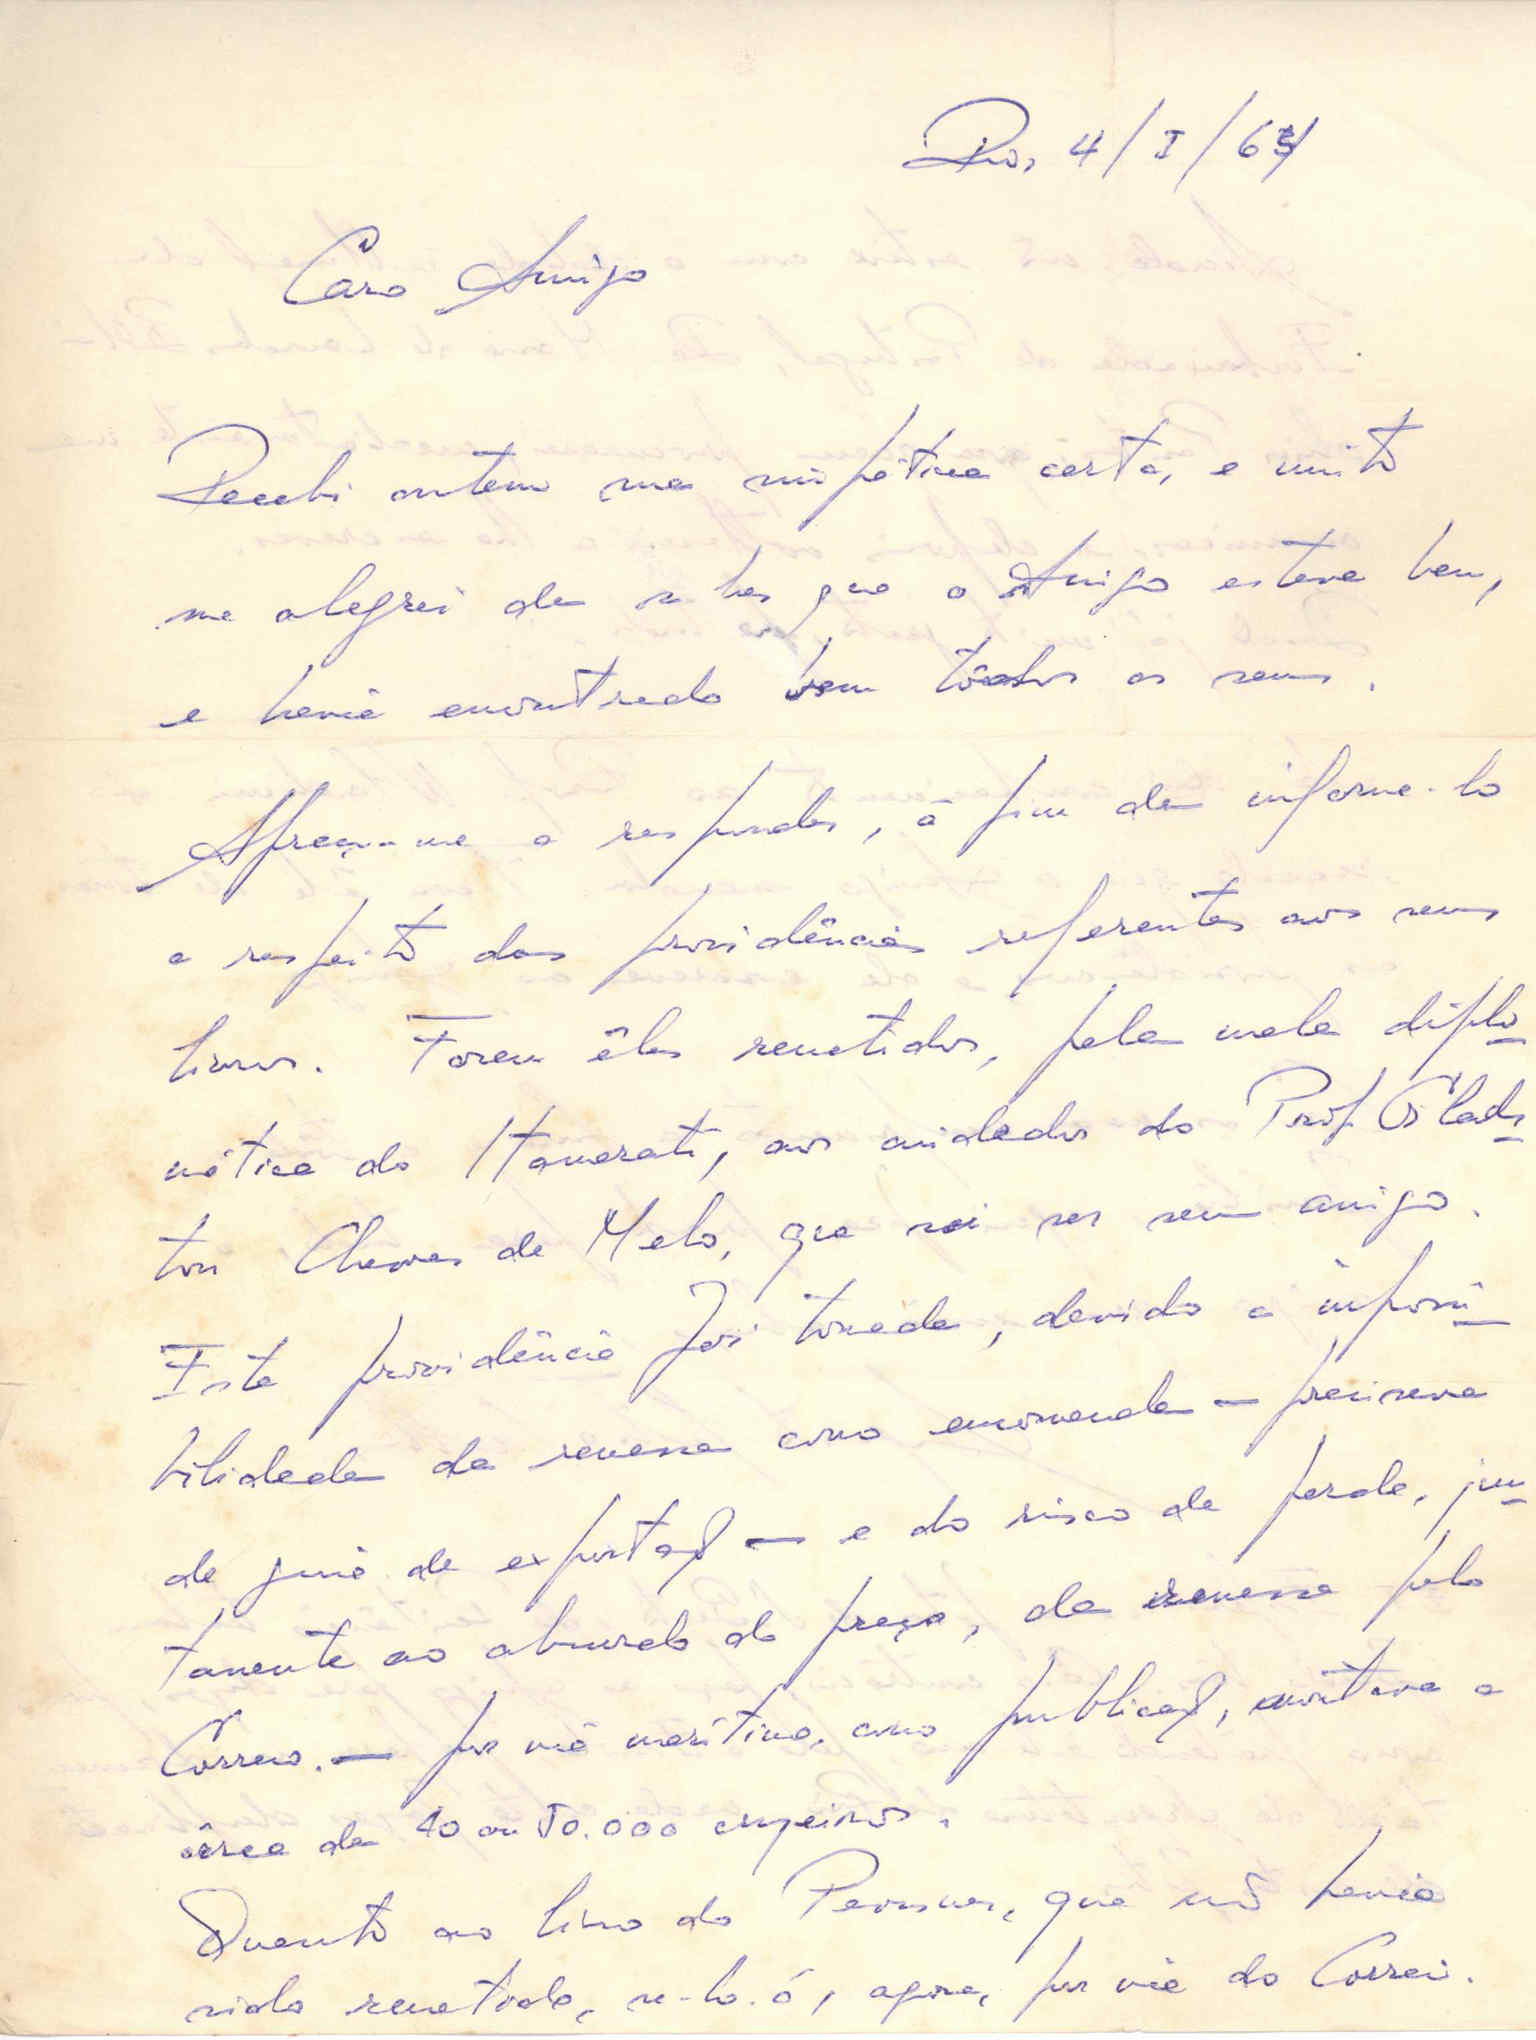 Rio, 4/I/63
Caro Amigo
Recebi ontem sua simpática carta, e muito
me alegrei de saber que o Amigo esteve bem,
e havia encontrado bem todos os seus.
Apresso-me a responder, a fim de informá-lo
a respeito das providências referentes aos seus
livros. Foram êles remetidos, pela mala diplo-
mática do Itamarati, aos cuidados do Prof. Glads-
ton Chaves de Melo, que vai ser seu amigo.
Esta providência foi tomada, devido a impossi-
bilidade da remessa como encomenda — precisava
de guia de exportaç. — e do risco de perda, jun-
tamente ao absurdo do preço, da remessa pelo
Correio. — por via marítima, como publicaç., montava a
cêrca de 40 ou 50.000 cruzeiros.
Quanto ao livro do Pevsner, que não havia
sido remetido, sê-lo-á, agora, por via do Correio.